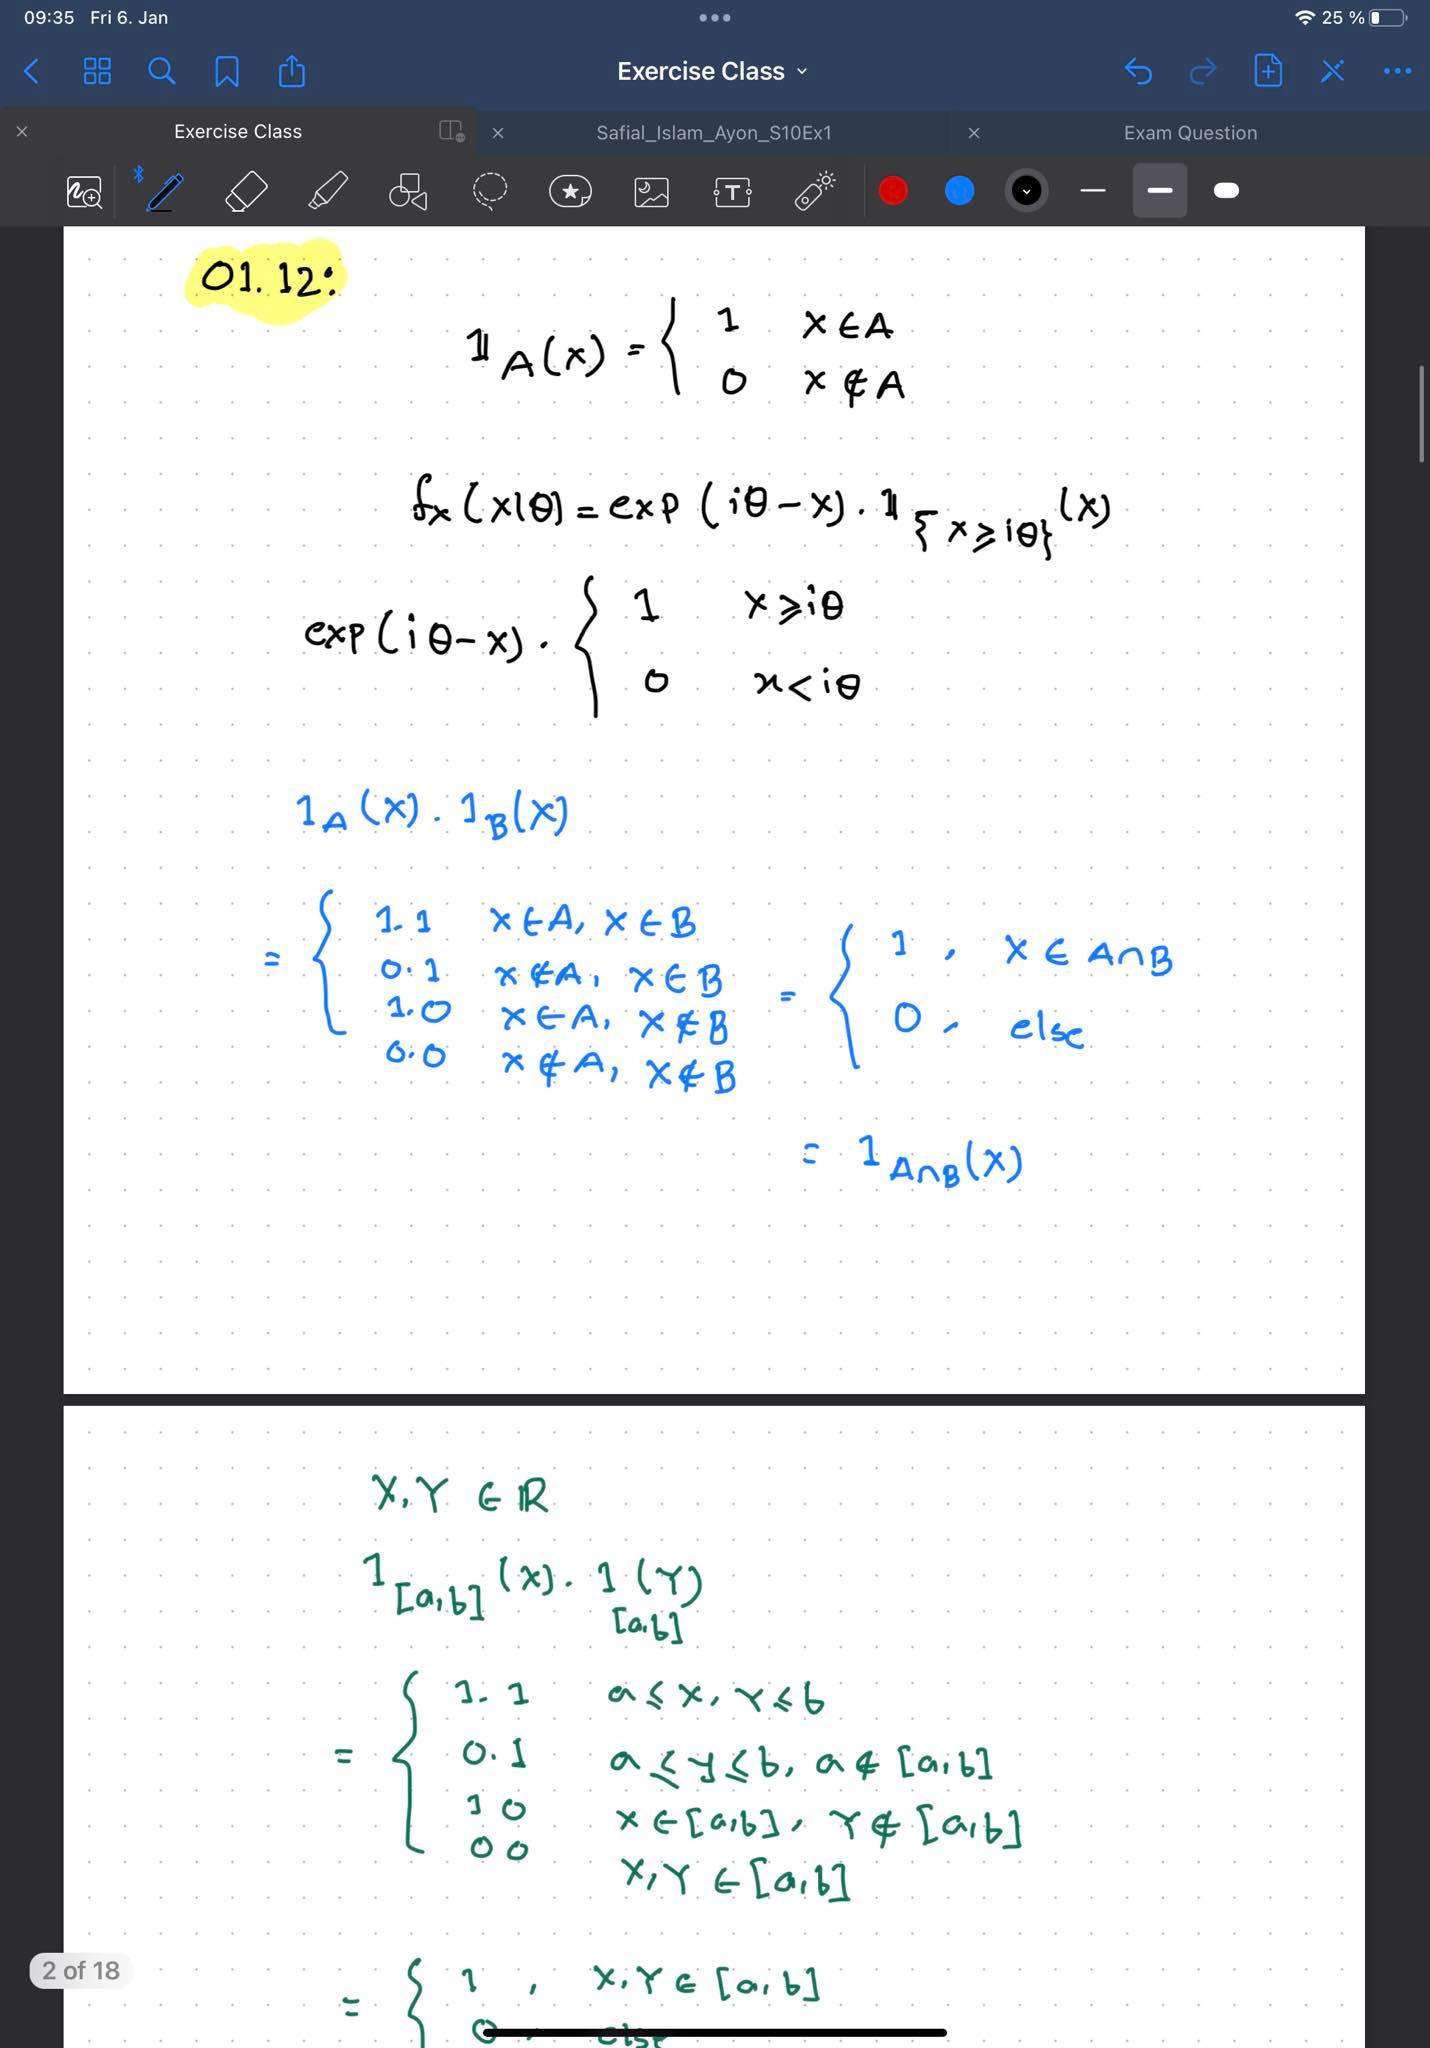 09:35 Fri 6. Jan
25 %
Exercise Class
Exercise Class
Safial_Islam_Ayon_S10Ex1
Exam Question
01.12:
𝟙_A(x) = { 1 x ∈ A
0 x ∉ A
f_x(x|θ) = exp(iθ-x). 𝟙_{x ≥ iθ}(x)
exp(iθ-x). { 1 x ≥ iθ
0 x < iθ
1_A(x). 1_B(x)
= { 1.1 x ∈ A, x ∈ B
0.1 x ∉ A, x ∈ B
1.0 x ∈ A, x ∉ B
0.0 x ∉ A, x ∉ B
= { 1, x ∈ A∩B
0, else
= 1_A∩B(x)
X, Y ∈ ℝ
1_[a,b](x). 1_[a,b](Y)
= { 1.1 a ≤ x, Y ≤ b
0.1 a ≤ y ≤ b, a ∉ [a,b]
1 0 x ∈ [a,b], Y ∉ [a,b]
0 0 X, Y ∈ [a,b]
= { 1, X, Y ∈ [a,b]
0, else
2 of 18